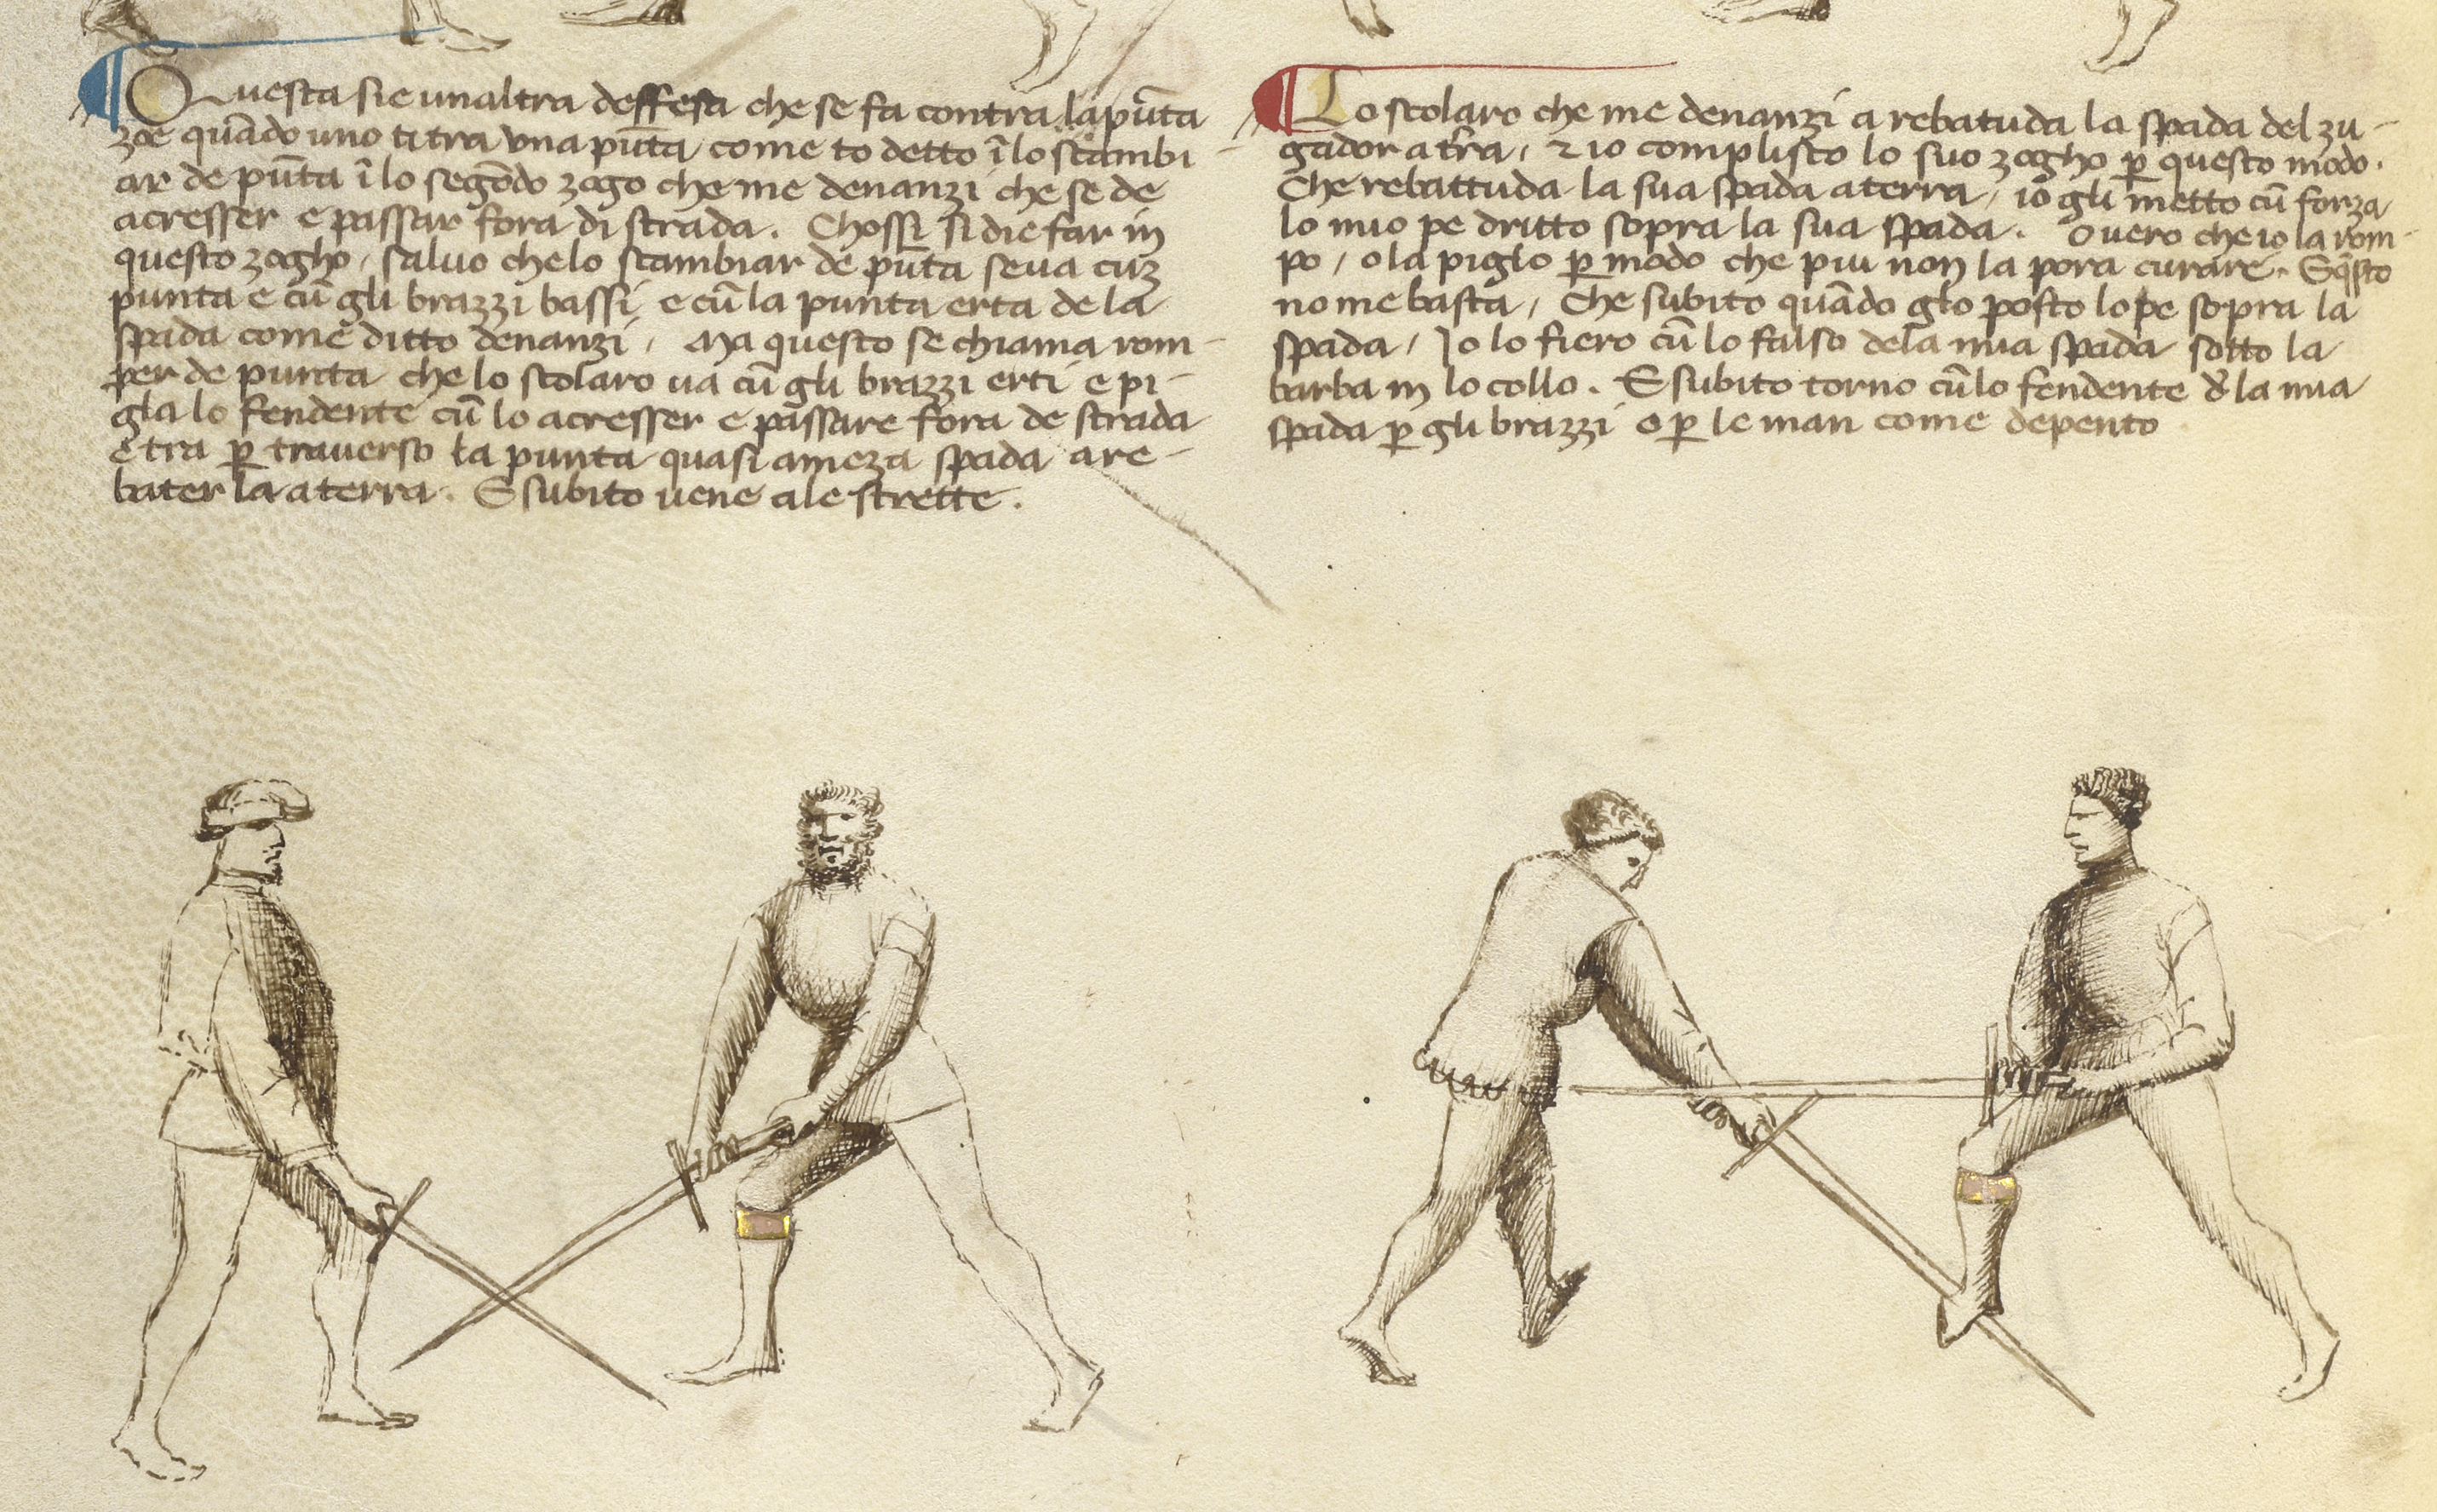 Questa sie unaltra deffesa che se fa contra la pūta
zoe quādo uno ti tra una pūta come to detto ī lo scambi
ar de pūta ī lo segōdo zogo che me denanzi che se de
acresser e passar fora di strada. Chossi si die far in
questo zogho, salvo che lo scambiar de pūta se va cuz
punta e cū gli brazzi bassi e cū la punta erta de la
spada come ditto denanzi, Ma questo se chiama rom-
per de punta che lo scolaro va cū gli brazzi erti e pi-
gla lo fendente cū lo acresser e passare fora de strada
e tra ꝑ traverso la punta quasi a meza spada a re-
bater la a terra. E subito vene a le strette.
Lo scolaro che me denanzi a rebatuda la spada del zu-
gador a tr̄a, ⁊ io complisco lo suo zogho ꝑ questo modo.
Che rebattuda la sua spada a terra, io gli metto cū forza
lo mio pe dritto sopra la sua spada. Overo che io la rom-
po, o la piglo ꝑ modo che piu non la pora curare. E q̄sto
no me basta, Che subito quādo glo posto lo pe sopra la
spada, Io lo fiero cū lo falso de la mia spada sotto la
barba in lo collo. E subito torno cū lo fendente d̄ la mia
spada ꝑ gli brazzi o ꝑ le man come depento